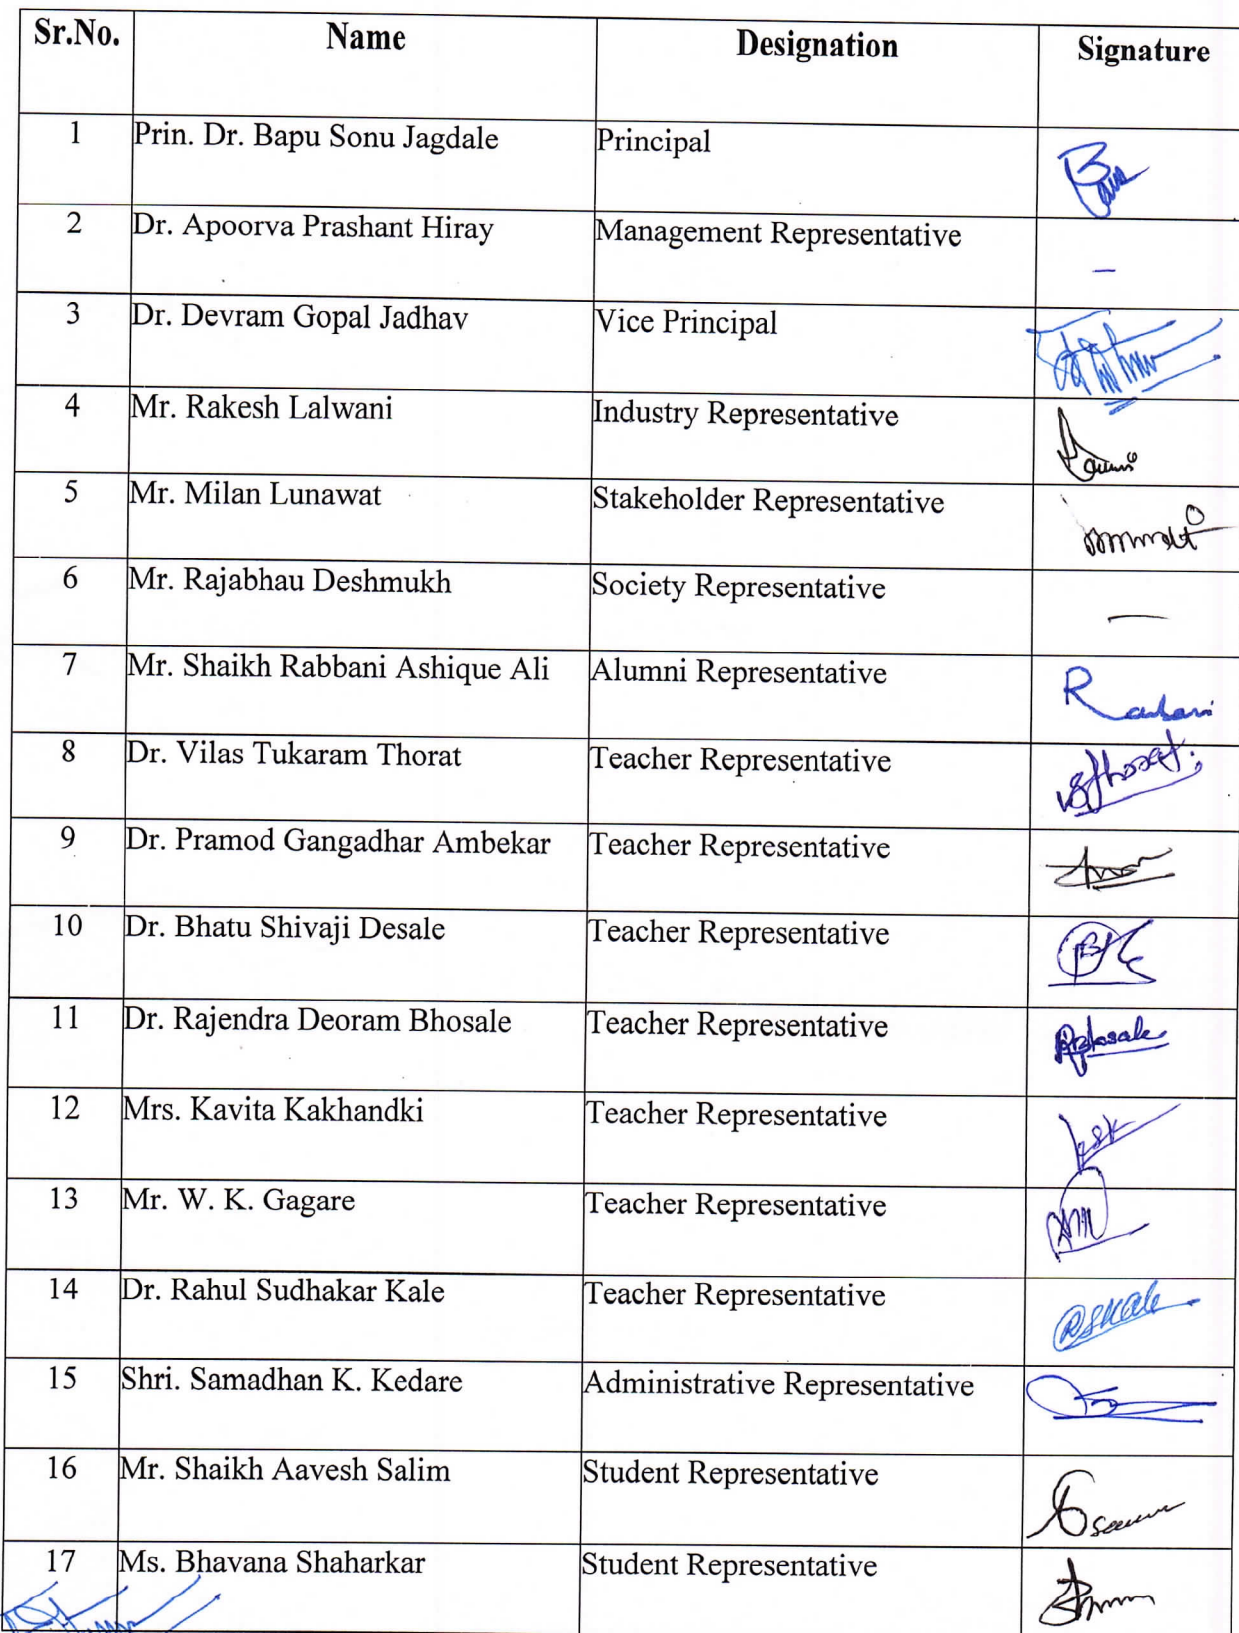 Sr.No. Name Designation Signature
1 Prin. Dr. Bapu Sonu Jagdale Principal
2 Dr. Apoorva Prashant Hiray Management Representative –
3 Dr. Devram Gopal Jadhav Vice Principal
4 Mr. Rakesh Lalwani Industry Representative
5 Mr. Milan Lunawat Stakeholder Representative
6 Mr. Rajabhau Deshmukh Society Representative —
7 Mr. Shaikh Rabbani Ashique Ali Alumni Representative
8 Dr. Vilas Tukaram Thorat Teacher Representative
9 Dr. Pramod Gangadhar Ambekar Teacher Representative
10 Dr. Bhatu Shivaji Desale Teacher Representative
11 Dr. Rajendra Deoram Bhosale Teacher Representative
12 Mrs. Kavita Kakhandki Teacher Representative
13 Mr. W. K. Gagare Teacher Representative
14 Dr. Rahul Sudhakar Kale Teacher Representative RSKale
15 Shri. Samadhan K. Kedare Administrative Representative
16 Mr. Shaikh Aavesh Salim Student Representative
17 Ms. Bhavana Shaharkar Student Representative